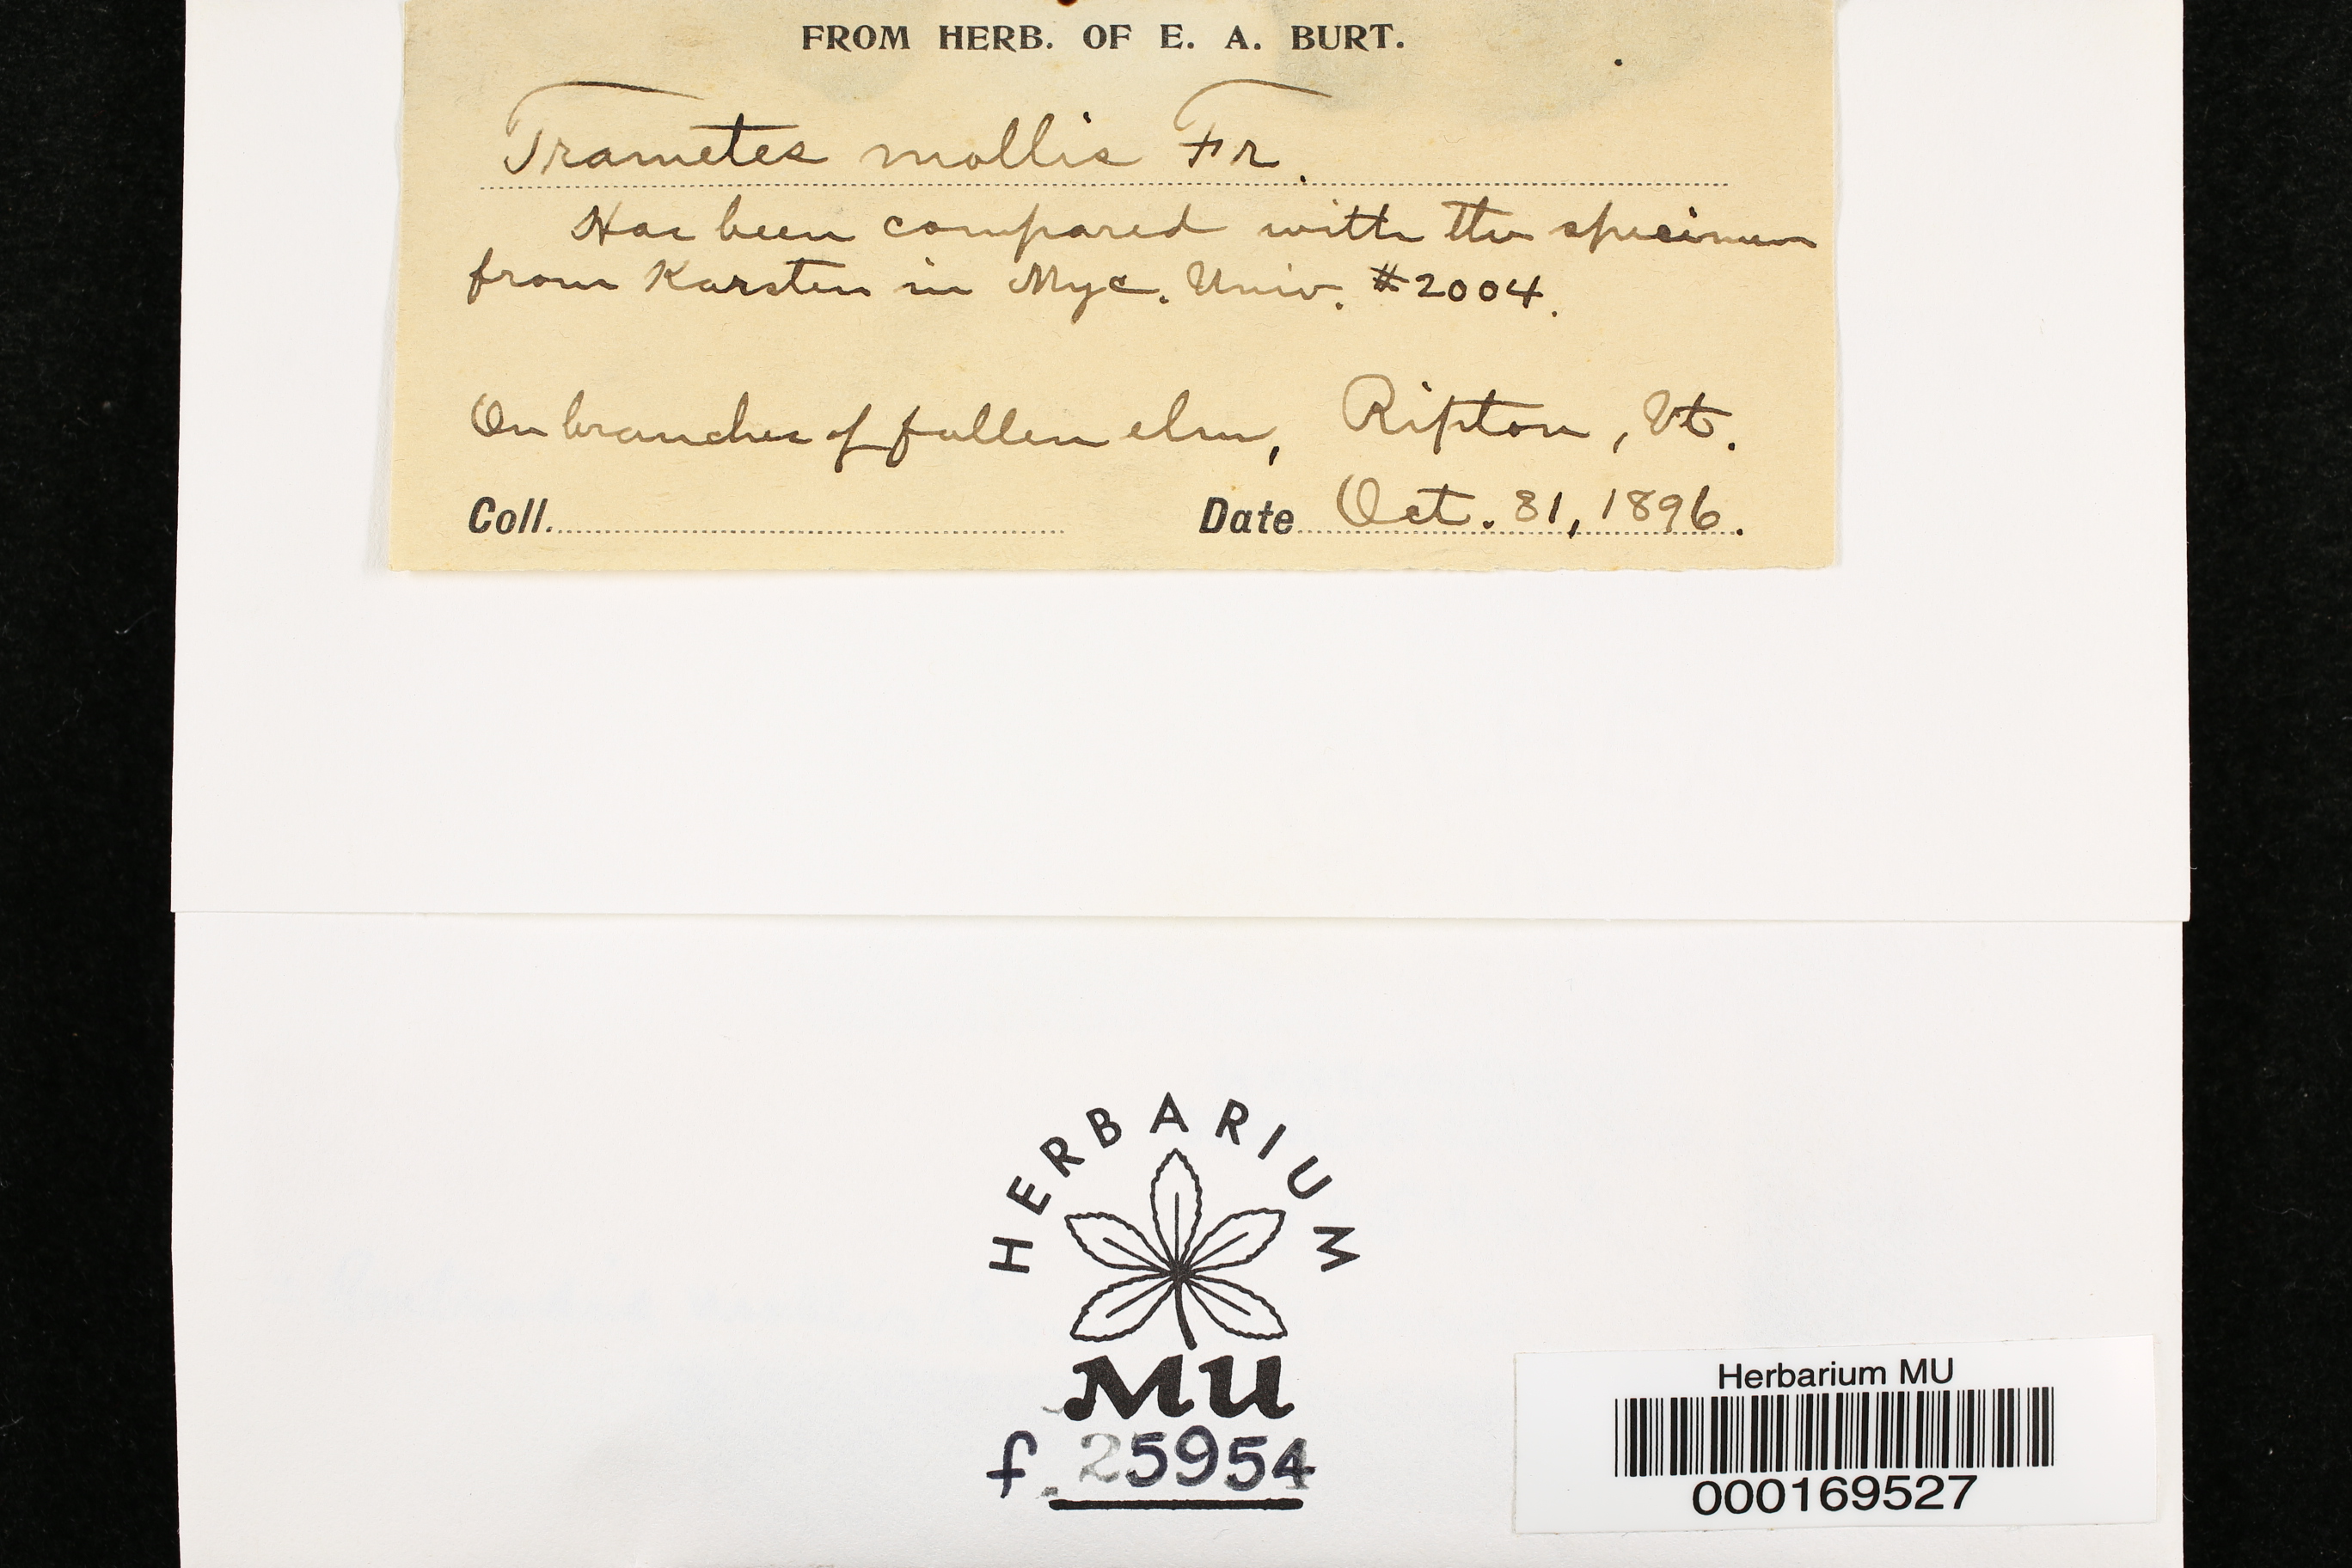 FROM HERB. OF E. A. BURT.
Trametes mollis Fr.
Has been compared with the specimen
from Karsten in Myc. Univ. #2004.
On branches of fallen elm, Ripton, Vt.
Coll. Date Oct. 31, 1896.
HERBARIUM
MU
f. 25954
Herbarium MU
000169527